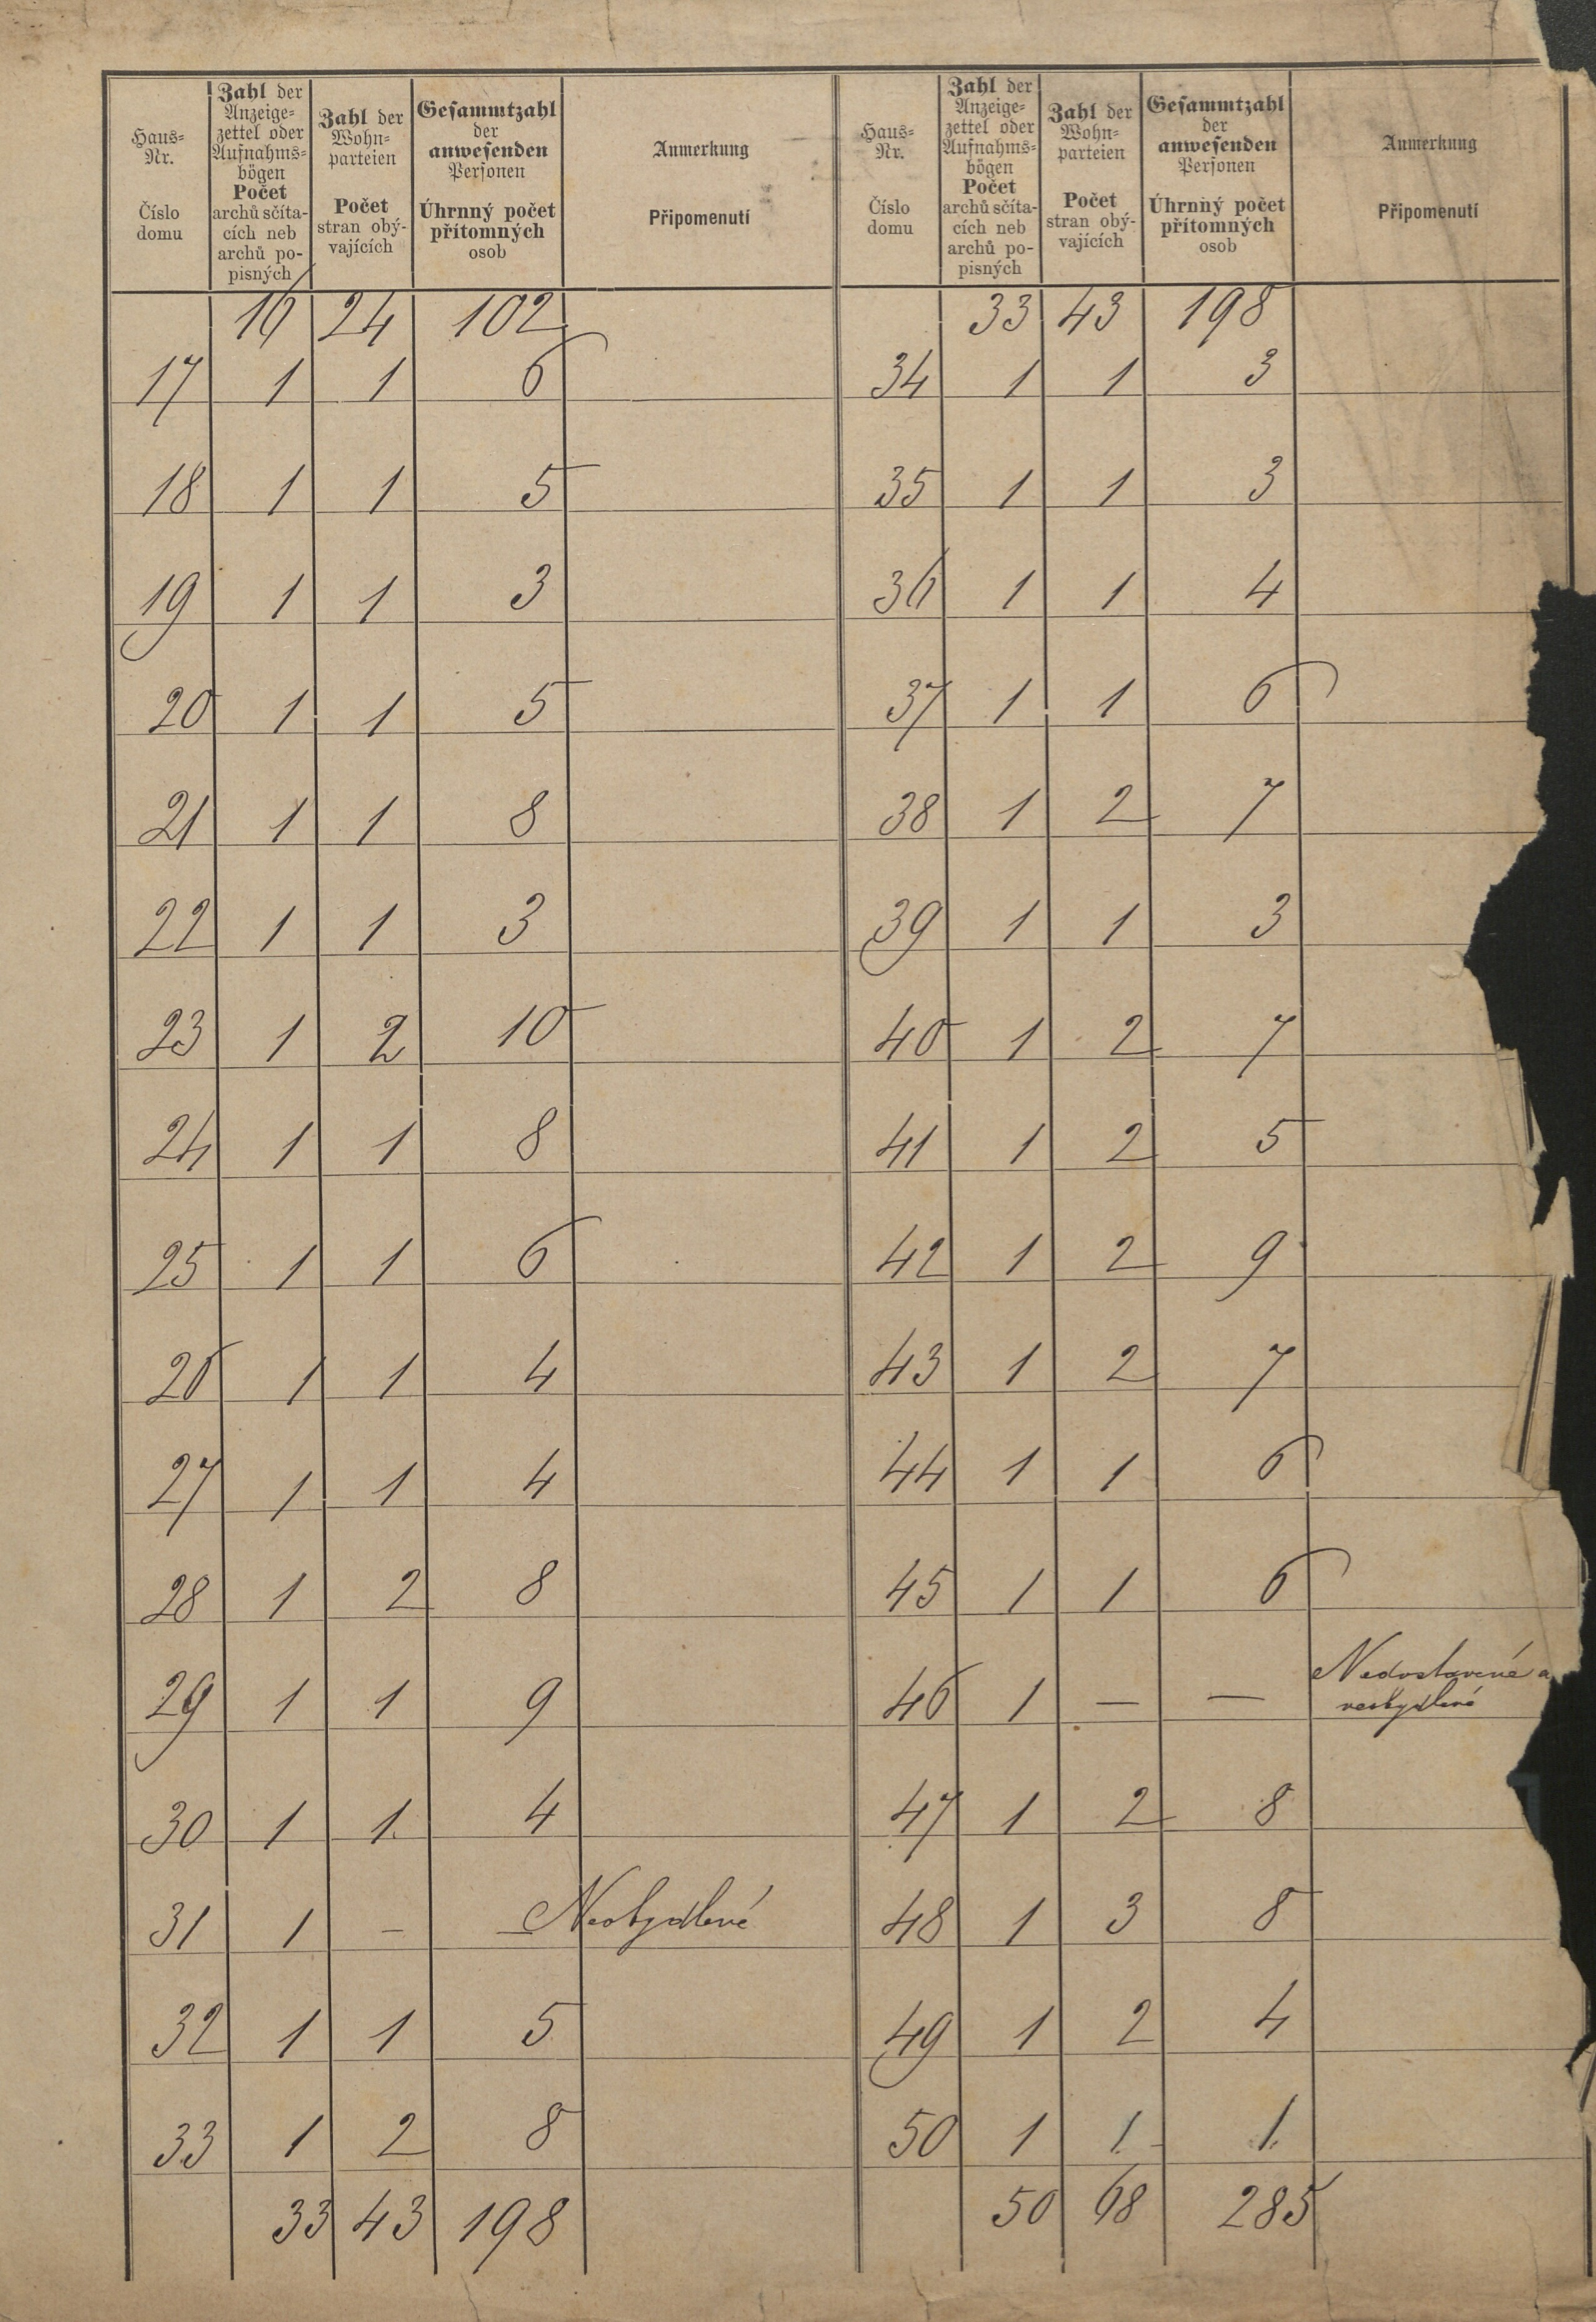 Haus-
Nr.
Číslo
domu
Zahl der
Anzeige-
zettel oder
Aufnahms-
bögen
Počet
archů sčíta-
cích neb
archů po-
pisných
Zahl der
Wohn-
parteien
Počet
stran obý-
vajících
Gesammtzahl
der
anwesenden
Personen
Úhrnný počet
přítomných
osob
Anmerkung
Připomenutí
16 24 102
17 1 1 6
18 1 1 5
19 1 1 3
20 1 1 5
21 1 1 8
22 1 1 3
23 1 2 10
24 1 1 8
25 1 1 6
26 1 1 4
27 1 1 4
28 1 2 8
29 1 1 9
30 1 1 4
31 1 – – Neobydlené
32 1 1 5
33 1 2 8
33 43 198
Haus-
Nr.
Číslo
domu
Zahl der
Anzeige-
zettel oder
Aufnahms-
bögen
Počet
archů sčíta-
cích neb
archů po-
pisných
Zahl der
Wohn-
parteien
Počet
stran obý-
vajících
Gesammtzahl
der
anwesenden
Personen
Úhrnný počet
přítomných
osob
Anmerkung
Připomenutí
33 43 198
34 1 1 3
35 1 1 3
36 1 1 4
37 1 1 6
38 1 2 7
39 1 1 3
40 1 2 7
41 1 2 5
42 1 2 9
43 1 2 7
44 1 1 6
45 1 1 6
46 1 – – Nedostavené a
neobydlené
47 1 2 8
48 1 3 8
49 1 2 4
50 1 1 1
50 68 285